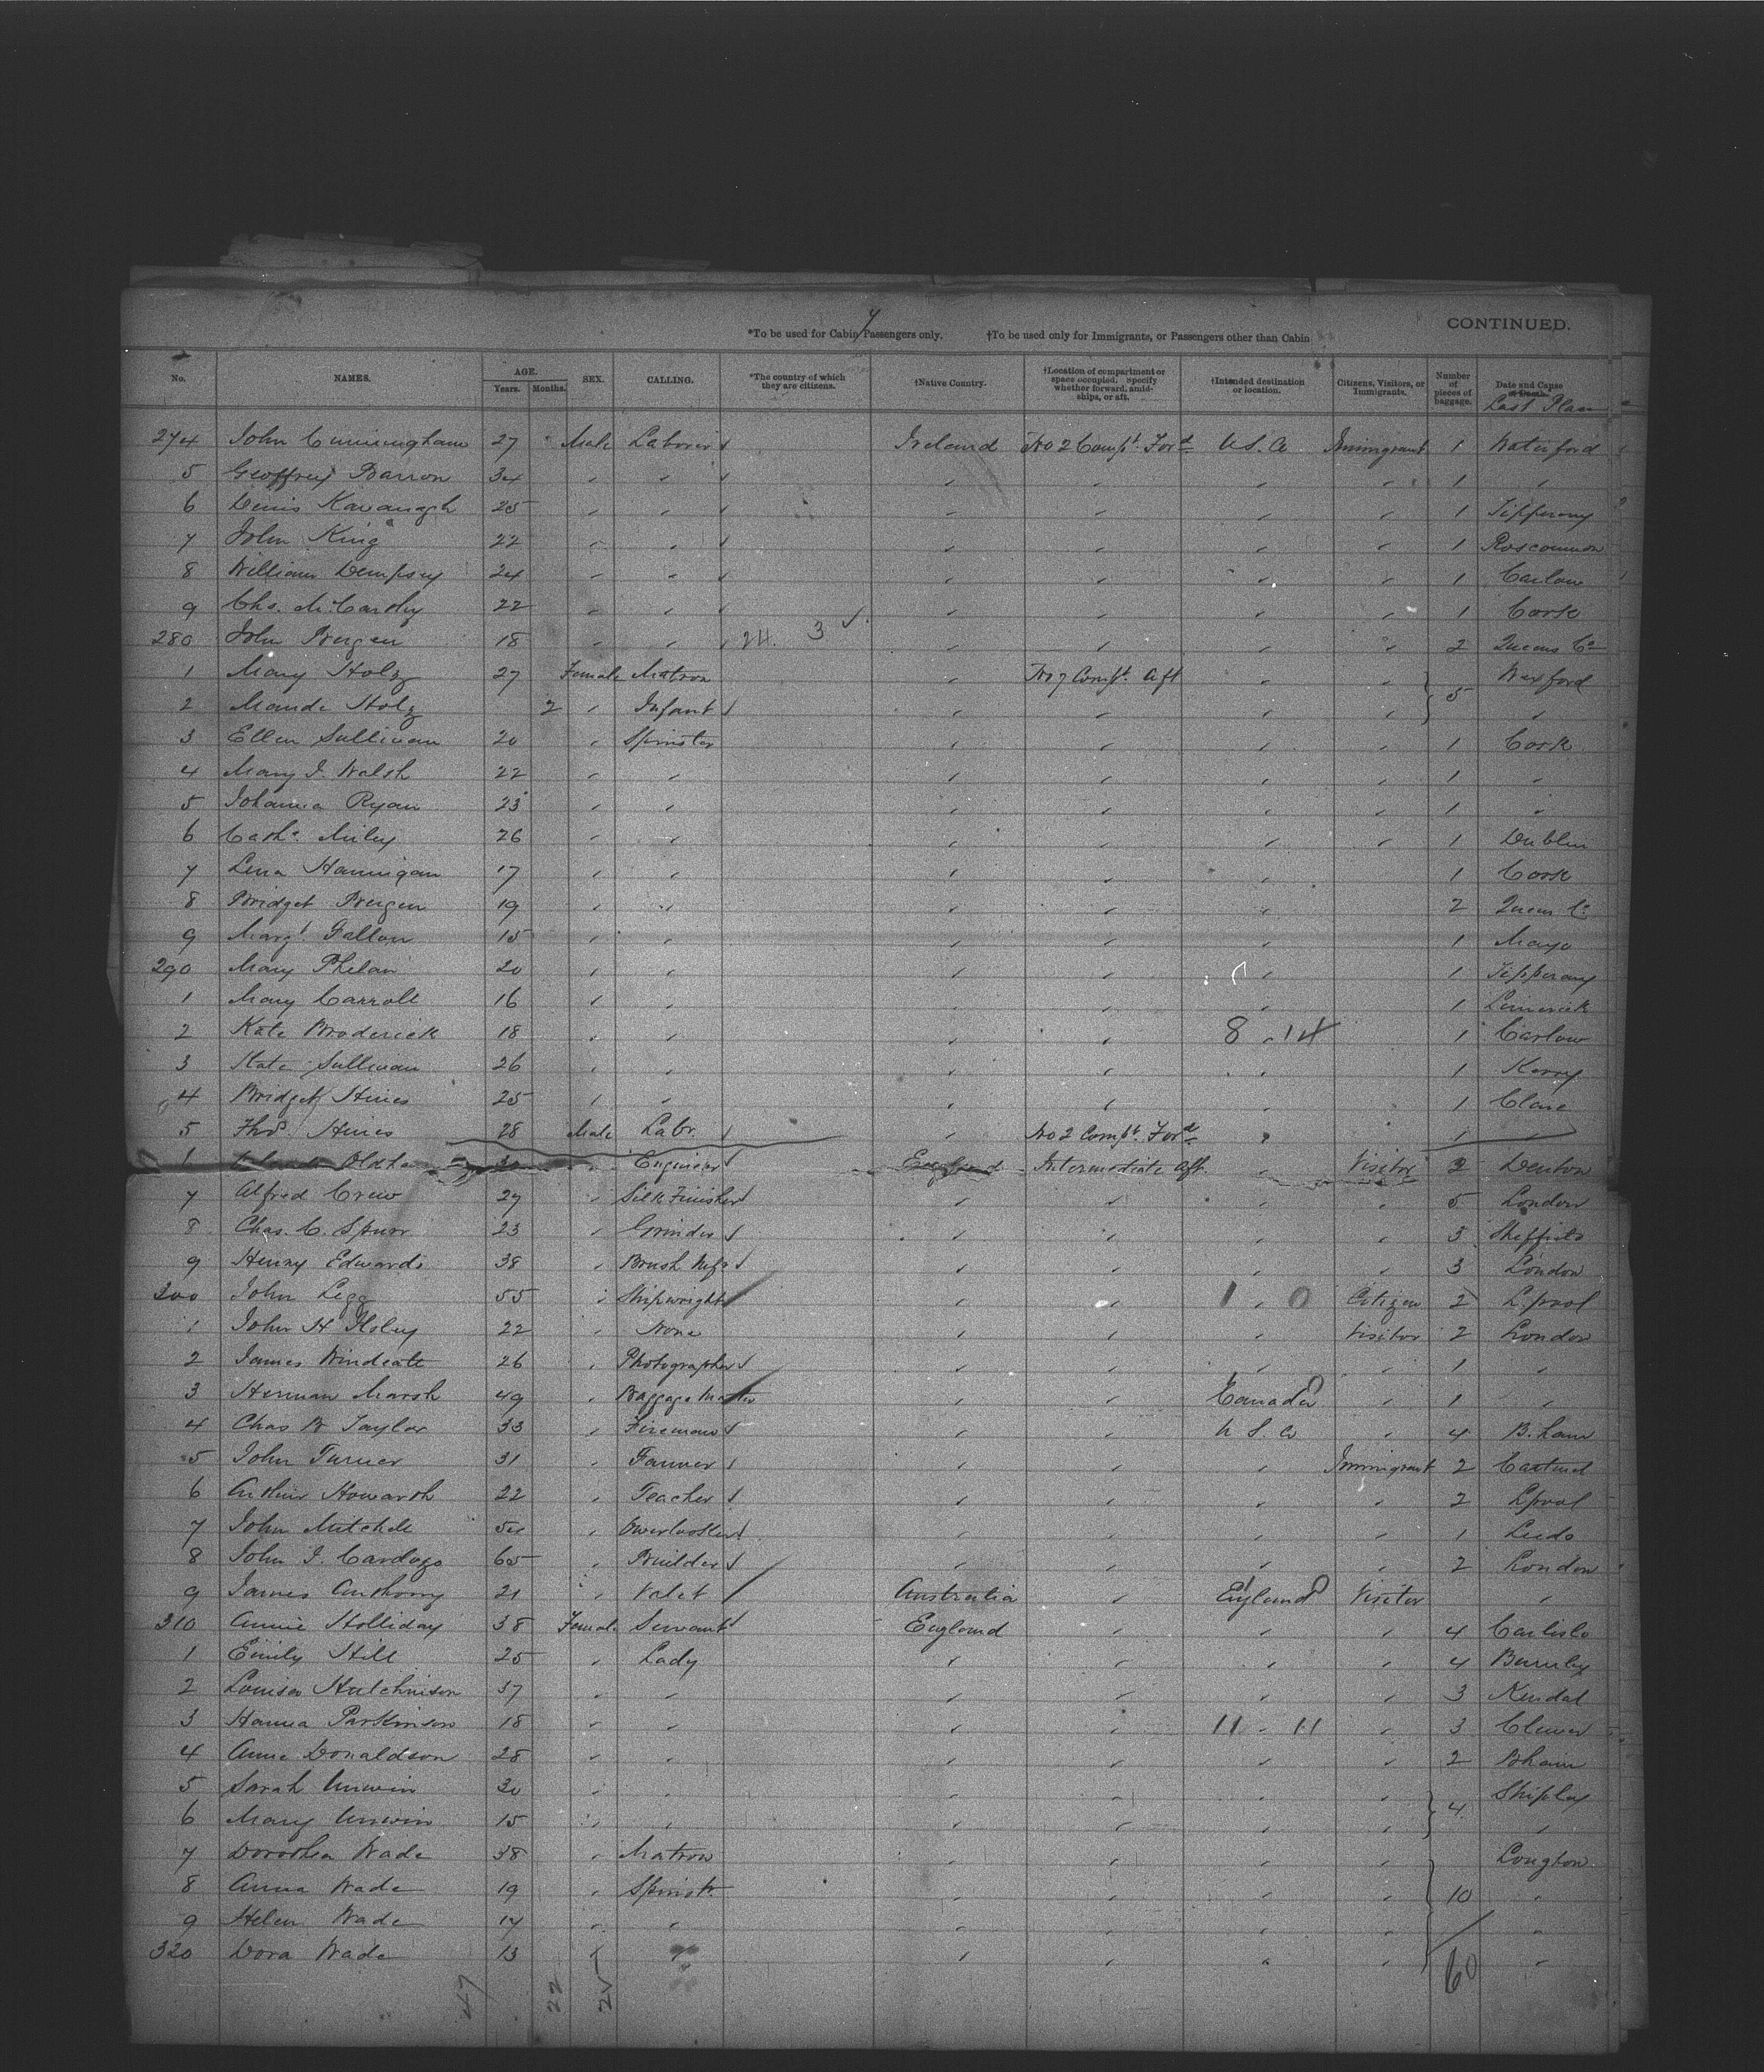 7
*To be used for Cabin Passengers only. †To be used only for Immigrants, or Passengers other than Cabin CONTINUED.
No. NAMES. AGE. Years. Months. SEX. CALLING. *The country of which they are citizens. †Native Country. †Location of compartment or space occupied. Specify whether forward, amidships, or aft. †Intended destination or location. Citizens, Visitors, or Immigrants. Number of pieces of baggage. Date and Cause of Death. Last Place
274 John Cunningham 27 Male Laborer Ireland No 2 Compt. Ford U.S.A Immigrant 1 Waterford
5 Geoffrey Barron 34 " " " " " " 1 "
6 Denis Kavanagh 25 " " " " " " 1 Tipperary
7 John King 22 " " " " " " 1 Roscommon
8 William Dempsey 24 " " " " " " 1 Carlow
9 Chs. McCarthy 22 " " " " " " 1 Cork
280 John Bergen 18 " " 24. 3 " " " " 2 Queens Co
1 Mary Holz 27 Female Matron " No 7 Compt. Aft " " 5 Wexford
2 Maude Holz 2 " Infant " " " " "
3 Ellen Sullivan 20 " Spinster " " " " 1 Cork
4 Mary J. Walsh 22 " " " " " " 1 "
5 Johanna Ryan 23 " " " " " " 1 "
6 Cathe. Miley 26 " " " " " " 1 Dublin
7 Lena Hannigan 17 " " " " " 1 Cork
8 Bridget Bergen 19 " " " " " 2 Queens Co
9 Margt. Fallon 15 " " " " " 1 Mayo
290 Mary Phelan 20 " " " " " 1 Tipperary
1 Mary Carroll 16 " " " " " 1 Limerick
2 Kate Broderick 18 " " " " 8 " 14 1 Carlow
3 Kate Sullivan 26 " " " " " 1 Kerry
4 Bridget Hines 25 " " " " " 1 Clare
5 Thos. Hines 28 Male Labr. " No 2 Compt. Ford " 1 "
Engineer England Intermediate Aft. " Visitor 3 Denton
7 Alfred Crew 27 " Silk Finisher " " " " 5 London
8 Chas. C. Spurr 23 " Grinder " " " " 3 Sheffield
9 Henry Edwards 38 " Brush Mfr " " " " 3 London
300 John Legg 55 " Shipwright " " 1 " 0 Citizen 2 L.pool
1 John H 22 " None " " " Visitor 2 London
2 James Windeatt 26 " Photographer " " " " 1 "
3 Herman Marsh 49 " Baggage Master " " Canada " 1 "
4 Chas B Taylor 33 " Fireman " " U S. A " 4 B.ham
5 John Turner 31 " Farmer " " " Immigrant 2 Cartmel
6 Arthur Howarth 22 " Teacher " " " " 2 Lpool
7 John Mitchell 54 " Overlooker " " " " 1 Leeds
8 John J. Cardozo 65 " Builder " " " 2 London
9 James Anthony 21 " Valet Australia " England Visitor "
310 Annie Holliday 38 Female Servant England " " " 4 Carlisle
1 Emily Hill 25 " Lady " " " " 4 Burnley
2 Louisa Hutchinson 37 " " " " " " 3 Kendal
3 Hanna Parkinson 18 " " " " 11 - 11 " 3
4 Anne Donaldson 28 " " " " " " 2 Bham
5 Sarah Unwin 30 " " " " " 4 Shipley
6 Mary Unwin 15 " " " " " " "
7 Dorothea Wade 38 " Matron " " " " Longton
8 Anna Wade 19 " Spinstr " " " " 10 "
9 Helen Wade 14 " " " " " " "
320 Dora Wade 13 " " " " " " "
47 22 25 60